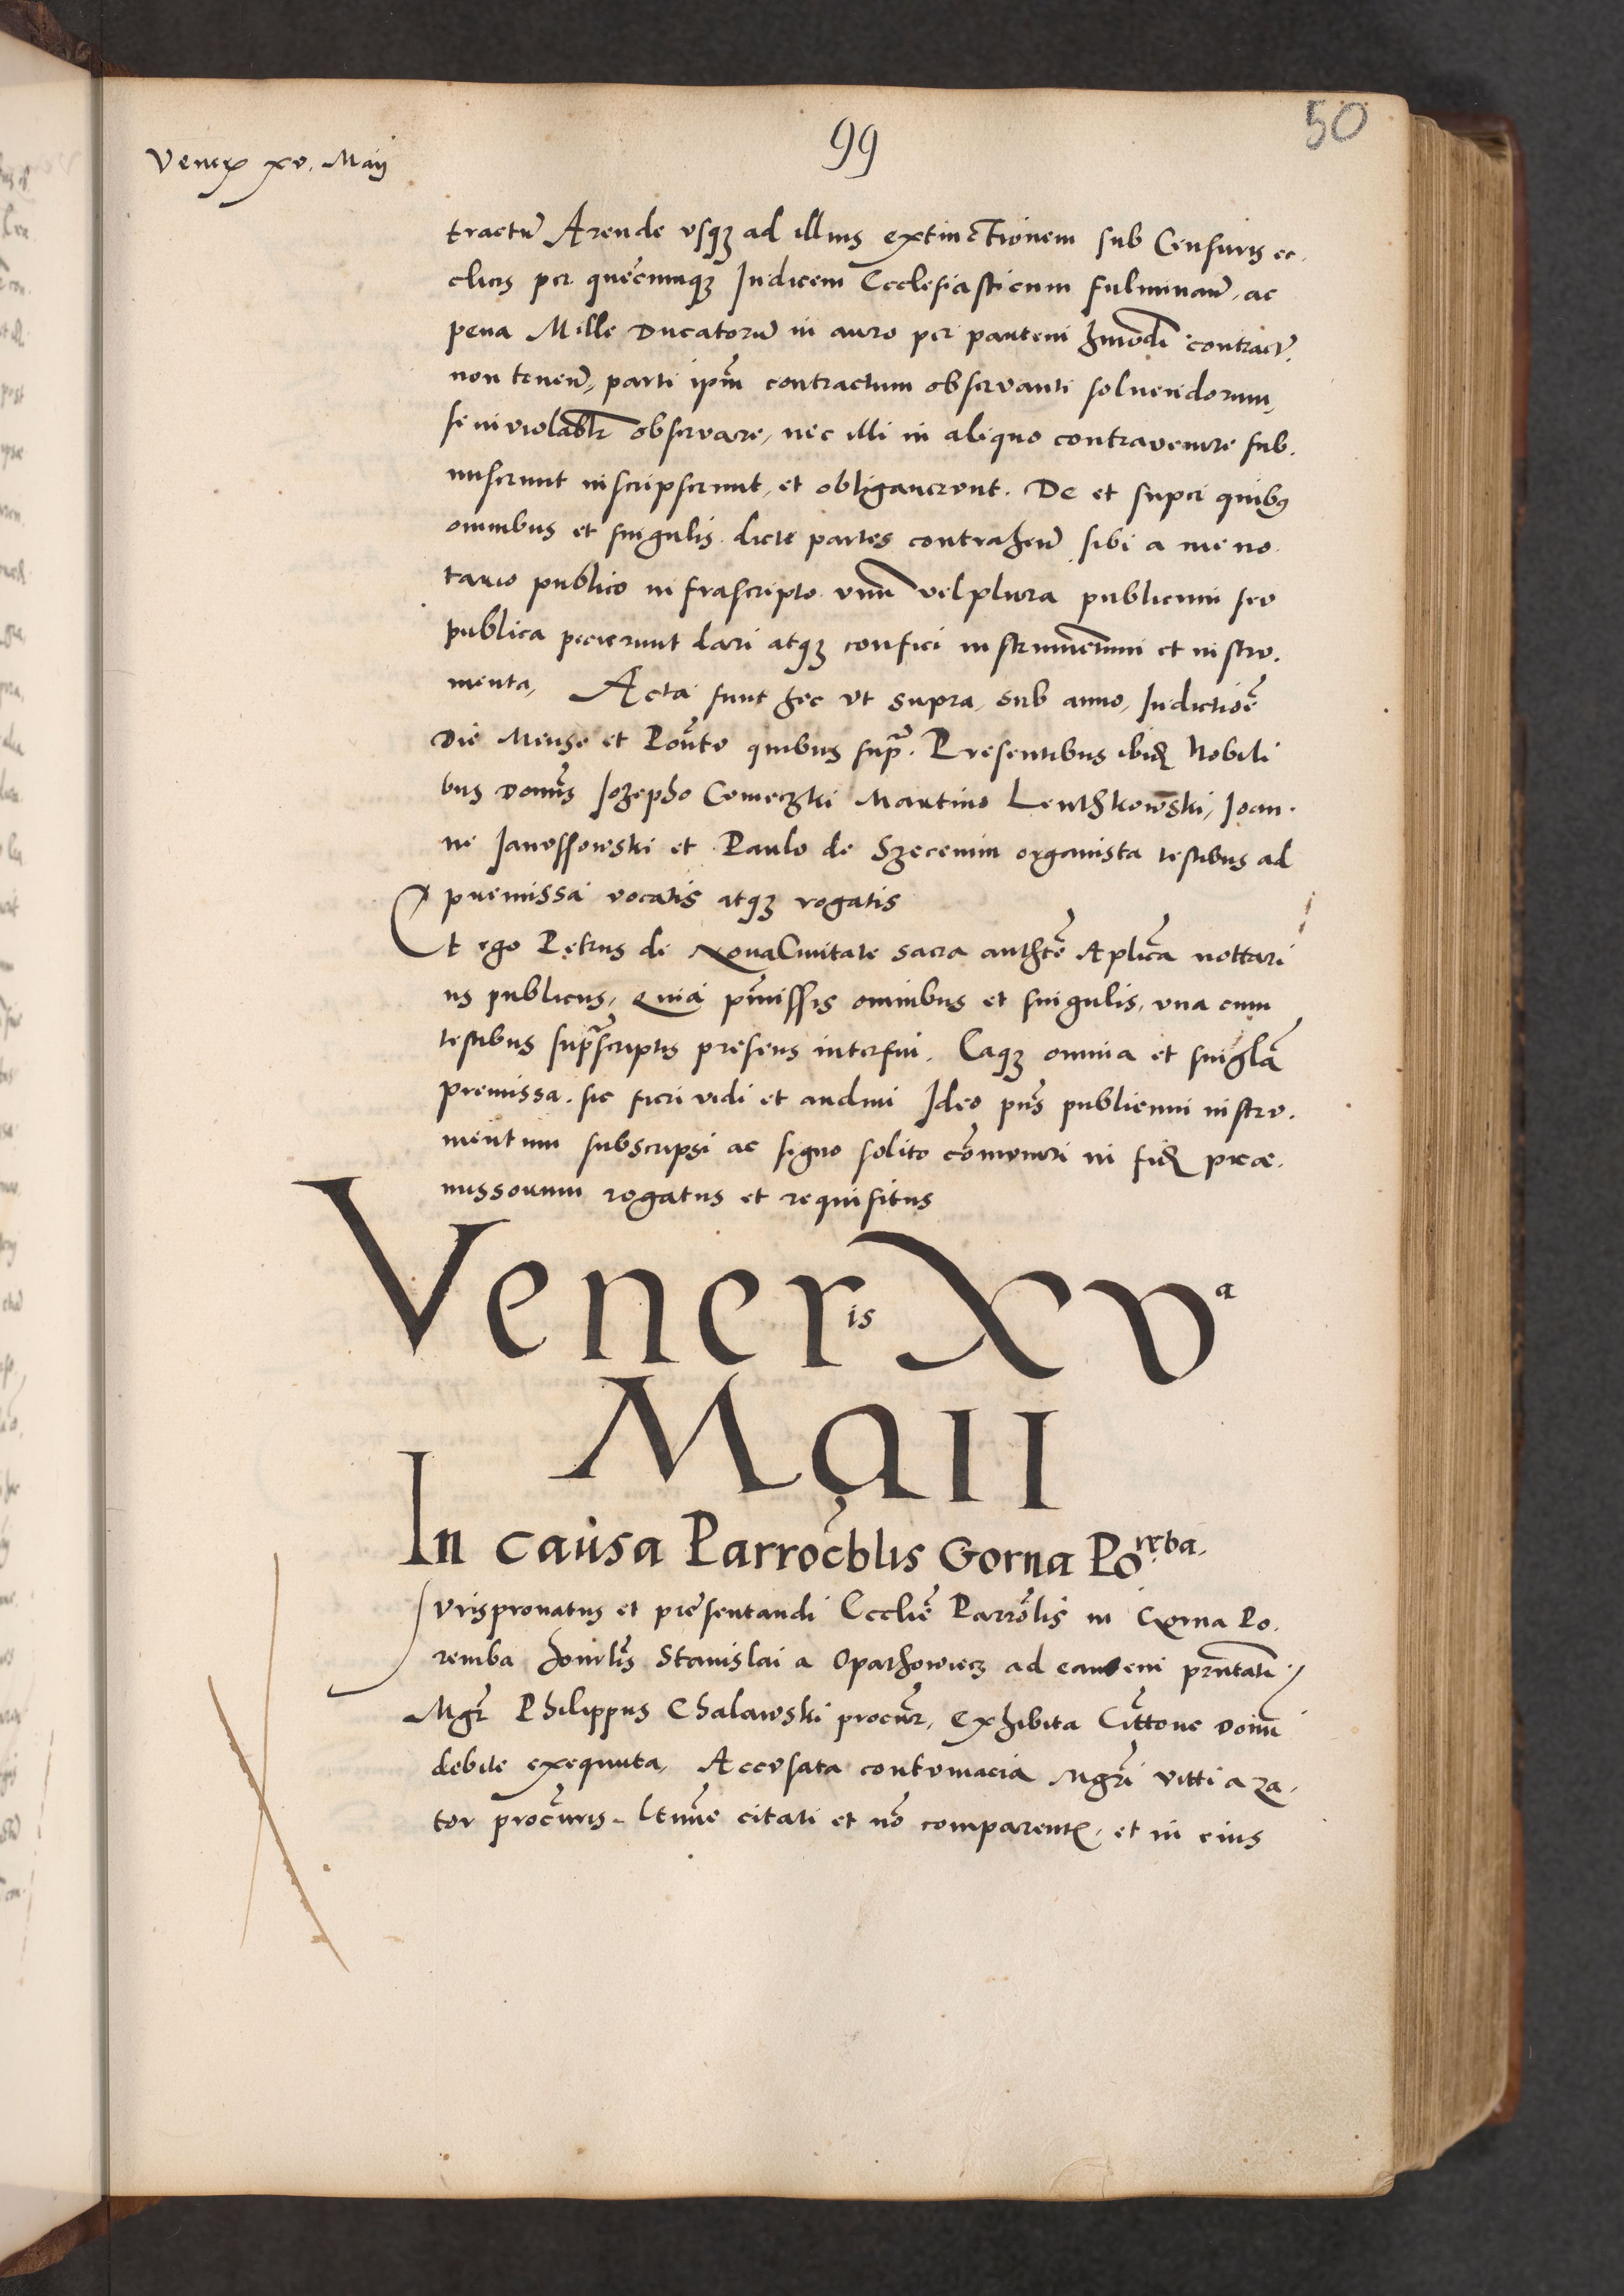 50
99
Veneꝝ xv. Maij
tractu͂ Arende vsqꝫ ad illius extinctionem sub Censuris ec-
clicis per que͂cumqꝫ Iudicem Ecclesiasticum fulminan͂, ac
pena Mille Ducatoru͂ in auro per partem hm͂odi contract͂
non tenen͂, parti ip͂m contractum obseruanti soluendorum,
se inviolabl͂r obseruare, nec illi in aliquo contravenire sub-
miserunt inscripserunt, et obligauerunt. De et super quibꝰ
omnibus et singulis dicte partes contrahen͂ sibi a me no-
tario publico infrascripto vnu͂ vel plura publicum seu
publica pecierunt dari atqꝫ confici instrume͂tum et instru-
menta, Acta sunt hec vt supra, sub anno, Indictio͂e
Die Mense et Pon͂tu quibus sup͂. Presentibus ibiꝺ Nobili
bus Dom͂s Iozepho Comeczki Martino Lenthkowski, Ioan-
ne Ianossowski et Paulo de Szecemin organista testibus ad
premissa vocatis atqꝫ rogatis
Et ego Petrus de NouaCiuitate sacra auth͂te Aplic͂a nottari
us publicus, Quia p͂missis omnibus et singulis, vna cum
testibus sup͂scriptis presens interfui. Eaqꝫ omnia et singl͂a
premissa. sic fieri vidi et audiui Ideo pn͂s publicum instru-
mentum subscripsi ac signo solito co͂muniri in fiꝺ præ-
missorum rogatus et requisitus
Veneris XVa
Maii
In causa Parroc͂hlis Gorna Poręba.
Iurispronatus et pre͂sentandi Eccli͂e Parro͂lis in Gorna Po-
remba honrl͂is Stanislai a Opathowiecz ad eandem pn͂tati
Mgr͂ Philippus Chalawski procur͂, Exhibita Citt͂one Domi͂
debite exequuta, Accusata contumacia Mgr͂i vitti a za-
tor procur͂is. lt͂ime citati et no͂ comparentꝭ, et in eius